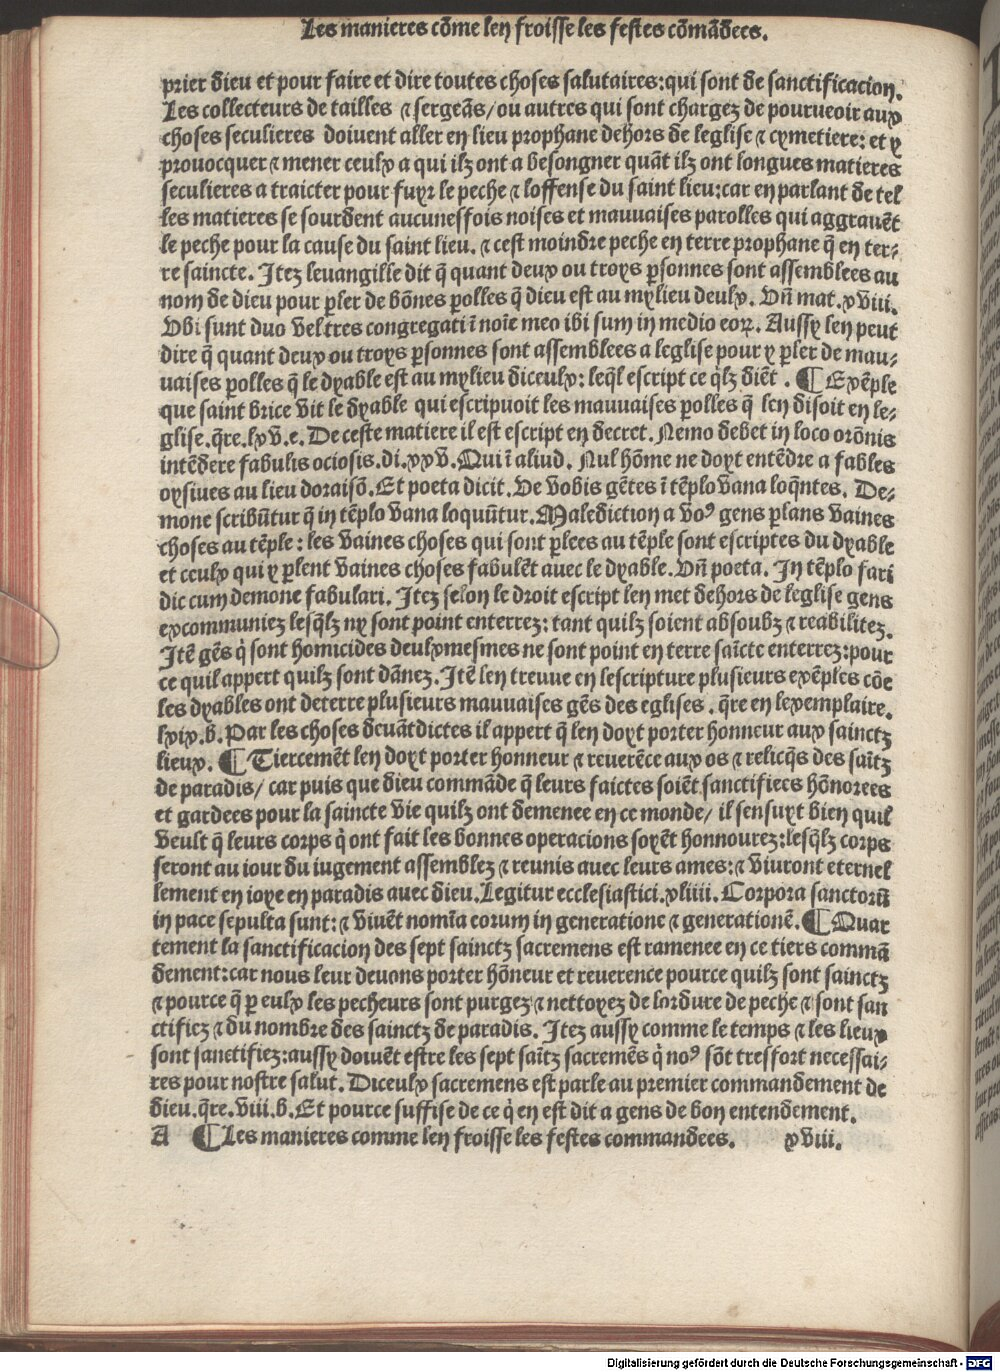 Les manieres cõme len froisse les festes cõmãdees.
prier dieu et pour faire et dire toutes choses salutaires:qui sont de sanctificacion.
Les collecteurs de tailles ⁊ sergeãs/ou autres qui sont chargez de pourueoir aux
choses seculieres doiuent aller en lieu prophane dehors de leglise ⁊ cymetiere: et y
prouocquer ⁊ mener ceulx a qui ilz ont a besongner quãt ilz ont longues matieres
seculieres a traicter pour fuyr le peche ⁊ loffense du saint lieu:car en parlant de tel
les matieres se sourdent aucunesfois noises et mauuaises parolles qui aggrauẽt
le peche pour la cause du saint lieu. ⁊ cest moindre peche en terre prophane q̃ en ter-
re saincte. Itez leuangille dit q̃ quant deux ou troys ꝑsonnes sont assemblees au
nom de dieu pour ꝑler de bõnes ꝑolles q̃ dieu est au mylieu deulx. Vñ mat. xviii.
Vbi sunt duo vel tres congregati ĩ noĩe meo ibi sum in medio eoꝝ. Aussy len peut
dire q̃ quant deux ou troys ꝑsonnes sont assemblees a leglise pour y ꝑler de mau-
uaises ꝑolles q̃ le dyable est au mylieu diceulx: leq̃l escript ce q̃lz diẽt . ¶ Exẽple
que saint brice vit le dyable qui escripuoit les mauuaises ꝑolles q̃ len disoit en le-
glise.q̃re.lxv.e. De ceste matiere il est escript en decret. Nemo debet in loco orõnis
intẽdere fabulis ociosis.di.xxv.Qui ĩ aliud. Nul hõme ne doyt entẽdre a fables
oysiues au lieu doraisõ. Et poeta dicit. Ve vobis gẽtes ĩ tẽplo vana loq̃ntes. De-
mone scribũtur q̃ in tẽplo vana loquũtur. Malediction a voꝰ gens ꝑlans vaines
choses au tẽple : les vaines choses qui sont ꝑlees au tẽple sont escriptes du dyable
et ceulx qui y ꝑlent vaines choses fabulẽt auec le dyable. Vñ poeta. In tẽplo fari
dic cum demone fabulari. Itez selon le droit escript len met dehors de leglise gens
excommuniez lesq̃lz ny sont point enterrez: tant quilz soient absoubz ⁊ reabilitez.
Itẽ gẽs q̇ sont homicides deulxmesmes ne sont point en terre saĩcte enterrez:pour
ce quil appert quilz sont dãnez. Itẽ len treuue en lescripture plusieurs exẽples cõe
les dyables ont deterre plusieurs mauuaises gẽs des eglises . q̃re en lexemplaire.
lxix.b. Par les choses deuãtdictes il appert q̃ len doyt porter honneur aux sainctz
lieux. ¶ Tiercemẽt len doyt porter honneur ⁊ reuerẽce aux os ⁊ relicq̃s des saĩtz
de paradis/ car puis que dieu commãde q̃ leurs faictes soiẽt sanctifiees hõnorees
et gardees pour la saincte vie quilz ont demenee en ce monde/ il sensuyt bien quil
veult q̃ leurs corps q̇ ont fait les bonnes operacions soyẽt honnourez:lesq̃lz corps
seront au iour du iugement assemblez ⁊ reunis auec leurs ames:⁊ viuront eternel
lement en ioye en paradis auec dieu. Legitur ecclesiastici.xliiii. Corpora sanctorũ
in pace sepulta sunt:⁊ viuẽt nomĩa eorum in generatione ⁊ generationẽ. ¶ Quar
tement la sanctificacion des sept sainctz sacremens est ramenee en ce tiers commã
dement:car nous leur deuons porter hõneur et reuerence pource quilz sont sainctz
⁊ pource q̃ ꝑ eulx les pecheurs sont purgez ⁊ nettoyez de lordure de peche ⁊ sont san
ctifiez ⁊ du nombre des sainctz de paradis. Itez aussy comme le temps ⁊ les lieux
sont sanctifiez:aussy doiuẽt estre les sept saĩtz sacremẽs q̇ noꝰ sõt tresfort necessai-
res pour nostre salut. Diceulx sacremens est parle au premier commandement de
dieu.q̃re.viii.b. Et pource suffise de ce q̇ en est dit a gens de bon entendement.
A ¶ Les manieres comme len froisse les festes commandees. xviii.
Digitalisierung gefördert durch die Deutsche Forschungsgemeinschaft - DFG